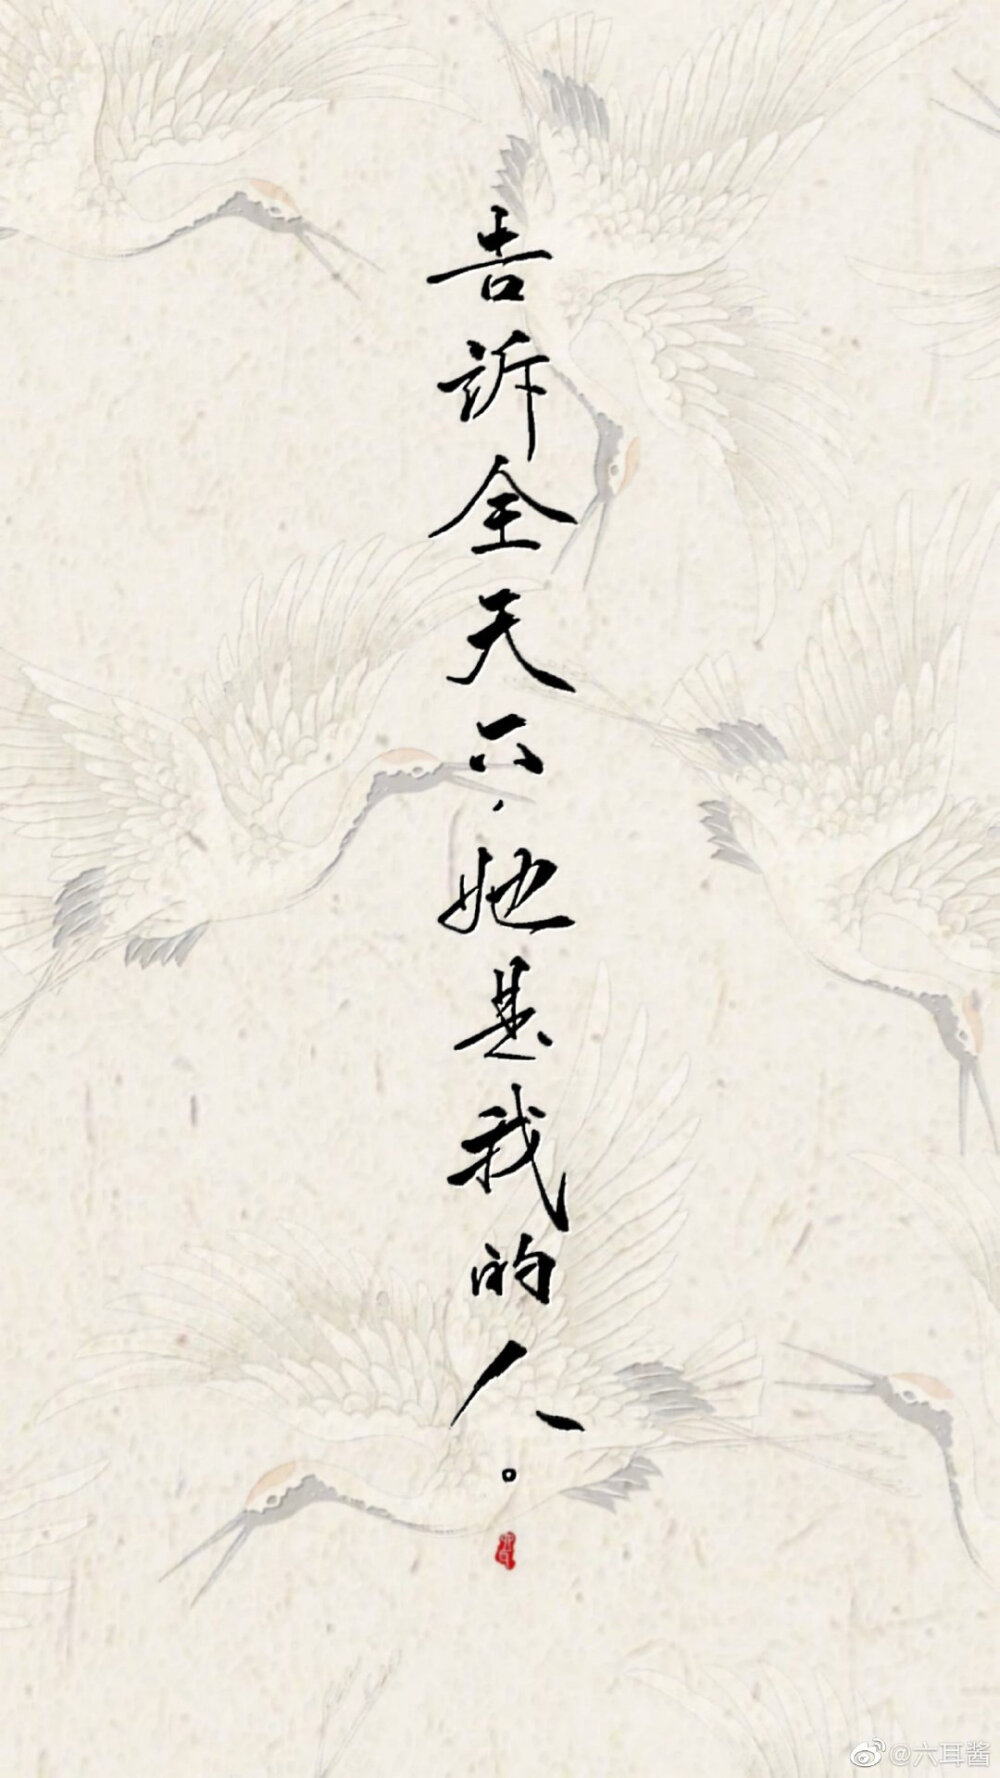 告诉全天下，她是我的人。
@六耳酱